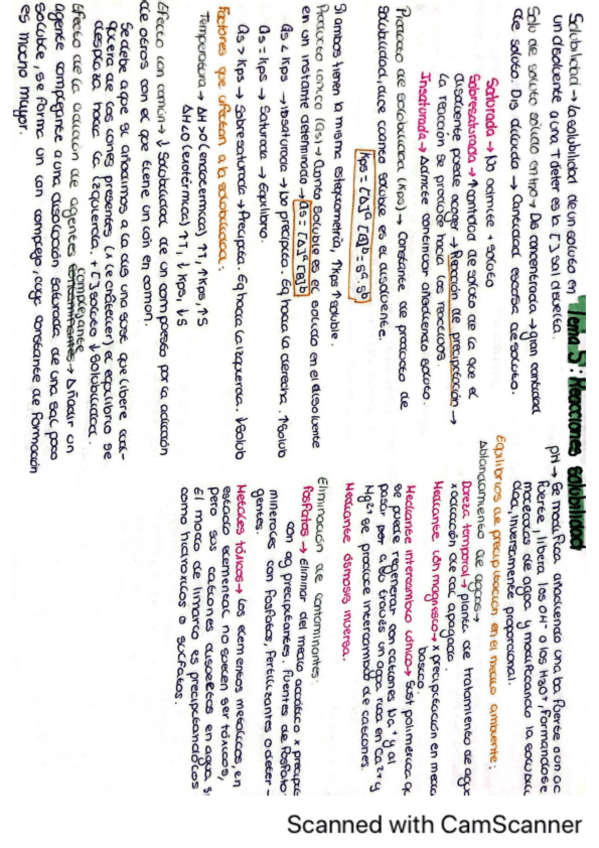 Tema 5: Reacciones solubilidad
Solubilidad → La solubilidad de un soluto en
un disolvente a una T deter es la [ ] sal disuelta.
Solu de soluto soluto en H2O → Dis concentrada → gran cantidad
de soluto. Dis diluida → Cantidad escasa de soluto.
Saturada → No admite + soluto
Sobresaturada → ↑ cantidad de soluto de la que el
disolvente puede acoger → Reacción de precipitación →
la reacción se produce hacia los reactivos.
Insaturada → Admite continuar añadiendo soluto.
Producto de solubilidad (Kps) → Constante de producto de
solubilidad, dice cuánto soluble es el disolvente.
Kps = [A]ᵃ [B]ᵇ = Sᵃ · Sᵇ
Si ambos tienen la misma estequiometría, ↑Kps ↑soluble.
Producto iónico (Qs) → Cuánto soluble es el soluto en el disolvente
en un instante determinado → Qs = [A]ᵃ [B]ᵇ
Qs < Kps → Insaturada → No precipita. Eq hacia la derecha. ↑Solub
Qs = Kps → Saturada → Equilibrio.
Qs > Kps → Sobresaturada → Precipita. Eq hacia la izquierda. ↓Solub
Factores que afectan a la solubilidad:
Temperatura → ΔH>0 (endotérmica) ↑T, ↑Kps, ↑S
ΔH<0 (exotérmica) ↑T, ↓Kps, ↓S
Efecto ion común → ↓ Solubilidad de un compuesto por la adición
de otros con el que tiene un ion en común.
Se debe a que si añadimos a la dis una sal que libere cual-
quiera de los iones presentes (x le châtelier) el equilibrio se
desplaza hacia la izquierda. + [ ] soluto ↓ solubilidad.
Efecto de la adición de agentes contaminantes → Añadir un
complejante
agente complejante a una disolución saturada de una sal poco
soluble, se forma un ion complejo, cuya constante de formación
es mucho mayor.
pH → Se modifica añadiendo una ba fuerte o un ac
fuerte, libera los OH⁻ o los H3O⁺, formándose
moléculas de agua y modificando la solubili
dad, inversamente proporcional.
Equilibrios de precipitación en el medio ambiente:
Ablandamiento de aguas →
Dureza temporal → planta de tratamiento de agua
x adición de cal apagada
Mediante ión magnésico → x precipitación en medio
básico.
Mediante intercambio iónico → Sust polimérica q
se puede regenerar con cationes Na⁺ y al
pasar por a su través un agua rica en Ca²⁺ y
Mg²⁺ se produce intercambio de cationes.
Mediante ósmosis inversa.
Eliminación de contaminantes:
Fosfatos → Eliminar del medio acuático x precipit
con ag precipitantes. Fuentes de fosfato:
minerales con fosfatos, fertilizantes o deter-
gentes.
Metales tóxicos → Los elementos metálicos, en
estado elemental no suelen ser tóxicos,
pero sus cationes disueltos en agua, sí
El modo de limarlo es precipitándolos
como hidróxidos o sulfatos.
Scanned with CamScanner